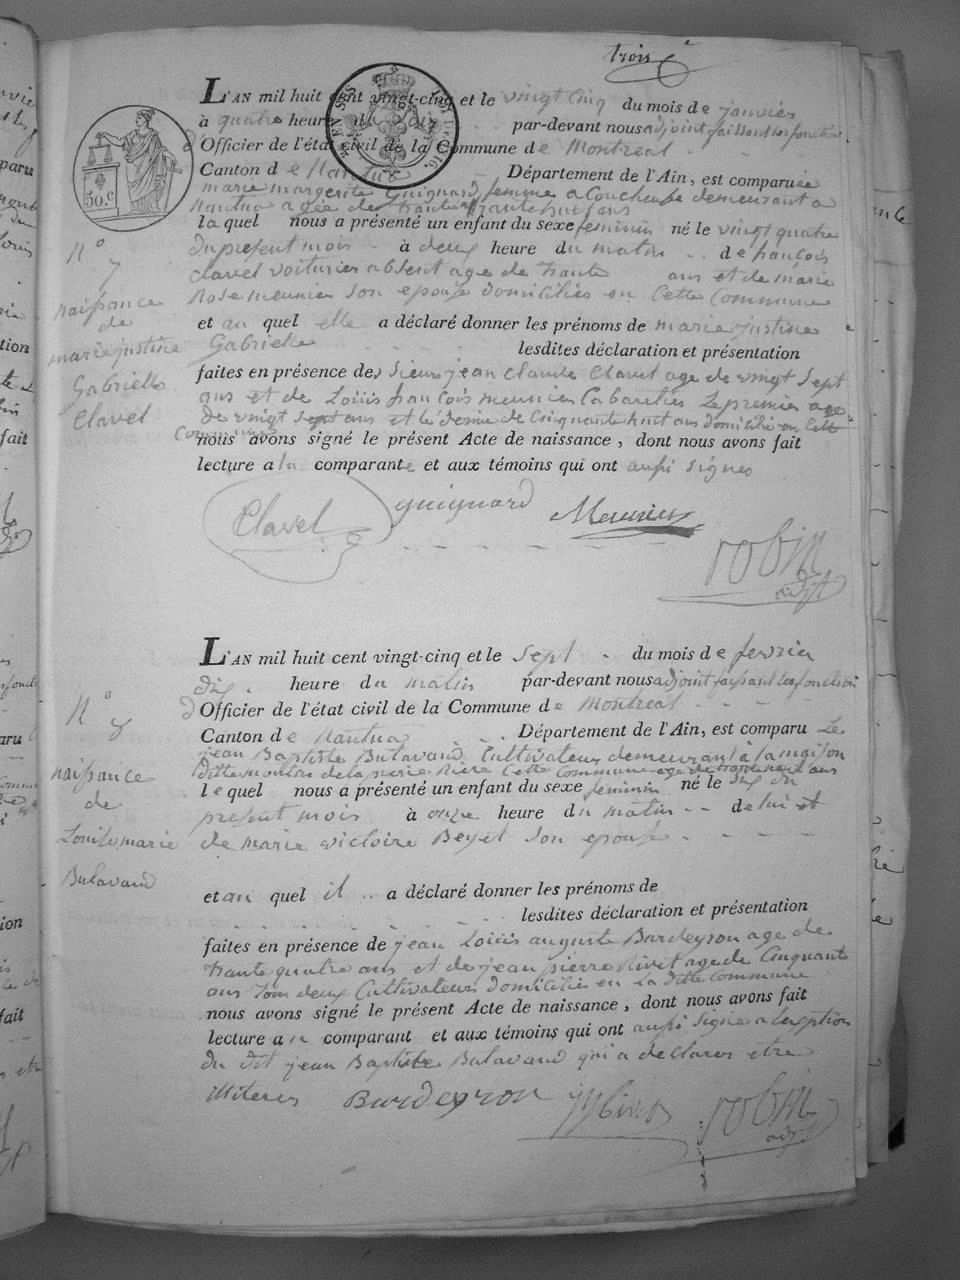 trois e
L'AN mil huit cent vingt-cinq et le vingt cinq du mois de janvier
à quatre heure du soir par-devant nous adjoint faissant les fonction
d'Officier de l'état civil de la Commune de Montreal
Canton de Nantua Département de l'Ain, est comparuée
marie margerite Guignard femme acoucheuse demeurant a
Nantua agée de trante huit ans
laquel nous a présenté un enfant du sexe feminin né le vingt quatre
du present mois à deux heure du matin de françois
Clavel voiturier absent age de trante ans et de marie
Rose meunier son epouse domiciliés en Cette Commune
et au quel elle a déclaré donner les prénoms de marie justine
Gabrielle lesdites déclaration et présentation
faites en présence des sieurs jean Claude Clavel age de vingt sept
ans et de Loüis françois meunier Cabaretier Le premier age
de vingt sept ans et le de Cinquante huit ans domicilié en Cette
Commune
nous avons signé le présent Acte de naissance, dont nous avons fait
lecture a la comparante et aux témoins qui ont aussi signes
N° 7
naissance
de
marie justine
Gabrielle
Clavel
Clavel guignard Meunier
robin
adjt
L'AN mil huit cent vingt-cinq et le sept du mois de fevrier
dix heure du matin par-devant nous adjoint faissant les fonction
d'Officier de l'état civil de la Commune de Montreal
Canton de Nantua Département de l'Ain, est comparu Le
jean Baptiste Balavand Cultivateur demeurant à la maison
ditte moulin de la pierre Cette Commune age de ans
lequel nous a présenté un enfant du sexe feminin né le six du
present mois à onze heure du matin de lui et
de marie victoire Beyet son epouse
et au quel il a déclaré donner les prénoms de
lesdites déclaration et présentation
faites en présence de jean Loüis auguste Bardeyron age de
trante quatre ans et de jean pierre Rivet age de Cinquante
ans tous deux Cultivateurs domiciliés en la ditte Commune
nous avons signé le présent Acte de naissance, dont nous avons fait
lecture a u comparant et aux témoins qui ont aussi signe a lexeption
du dit jean Baptiste Balavand qui a declares etre
illiteres Bardeyron
robin
adjt
N° 8
naissance
de
Louise marie
Balavand